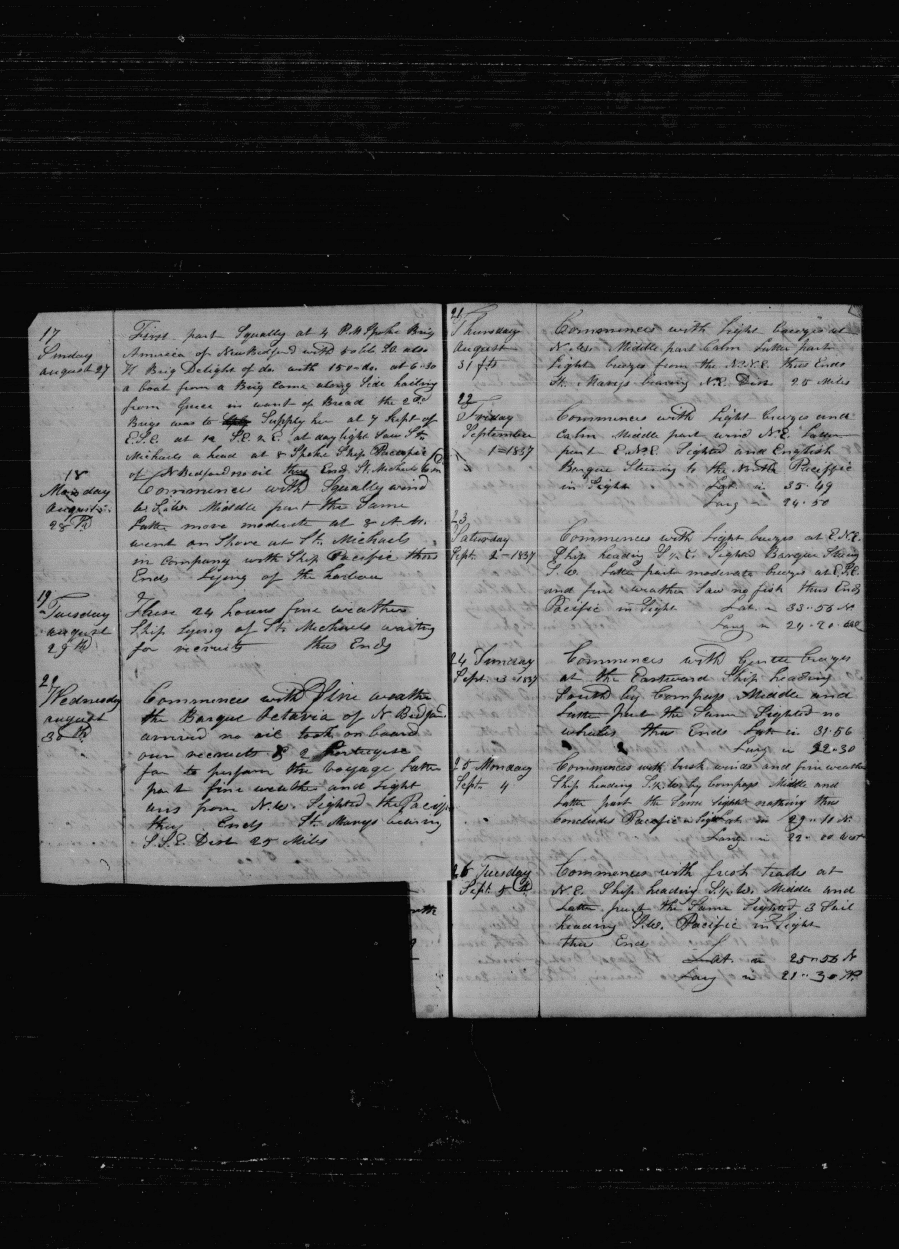 17
Sunday
august 27
First part Squally at 4 P.M Spoke Brig
America of New Bedford with bbls also
W Brig Delight of do with 150 do. at 6-30
a boat from a Brig came along Side hailing
from in want of Bread the 2d
Brigs was to Supply her at 7 Sept of
E.S.E. at 12 S.E. & E. at day light Saw St.
Michaels a head at 8 Spoke Ship Pacific
of N Bedford no oil thus End St. Michaels
18
Monday
August
28 th
Commences with Squally wind
Middle part the Same
Latter more moderate at 8 A.M.
went on Shore at St. Michaels
in company with Ship Pacific thus
Ends Lying of the harbour
19
Tuesday
august
29 th
These 24 hours fine weather
Ship Lying of St. Michaels waiting
for recruits thus Ends
Wednesday
august
30 th
Commences with Fine weather
the Barque Octavia of N Bedford
arrived no oil took on board
our recruits & 2 Portugese
for to perform the voyage Latter
part fine weather and light
airs from N.W. Sighted the Pacific
thus Ends St. Marys bearing
S.S.E Dist 25 Miles
21
Thursday
August
31 st
Commences with Light breezes at
N.W. Middle part Calm Latter part
light breezes from the N.N.E. thus Ends
St. Marys bearing N.E. Dist 25 Miles
22
Friday
September
1=1837
Commences with Light breezes and
Calm Middle part wind N.E. Latter
part E.N.E. Sighted and English
Barque Steering to the North Paceffic
in Sight Lat in 35-49
Long in 24-50
23
Saturday
Sept. 2-1837
Commences with Light breezes at E.N.E.
Ship heading Sighted Barque Steering
S.W. Latter part moderate breezes at E.S.E.
and fine weather Saw no fish thus Ends
Pacific in Sight Lat. in 33-56 N
Long in 24-20
24 Sunday
Sept. 3-1837
Commences with Gentle breezes
at the Eastward Ship heading
South by Compass Middle and
Latter part the Same Sighted no
whales thus Ends Lat in 31-56
Long in 22-30
25 Monday
Sept. 4
Commences with brisk winds and fine weather
Ship heading by Compass Middle and
Latter part the Same Sighted nothing thus
Concludes Pacific in Sight Lat. in 29-10 N
Long in 22-00 West
26 Tuesday
Sept. 5 th
Commences with fresh trades at
N.E. Ship heading S.&.W. Middle and
Latter part the Same Sighted 3 Sail
heading S.W. Pacific in Sight
thus End
Lat. in 25-56 N
Long in 21-30 W.